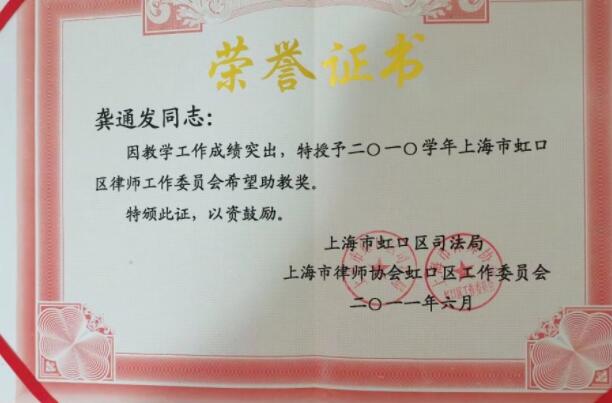 荣誉证书
龚通发同志：
因教学工作成绩突出，特授予二〇一〇学年上海市虹口
区律师工作委员会希望助教奖。
特颁此证，以资鼓励。
上海市虹口区司法局
上海市律师协会虹口区工作委员会
二〇一一年六月